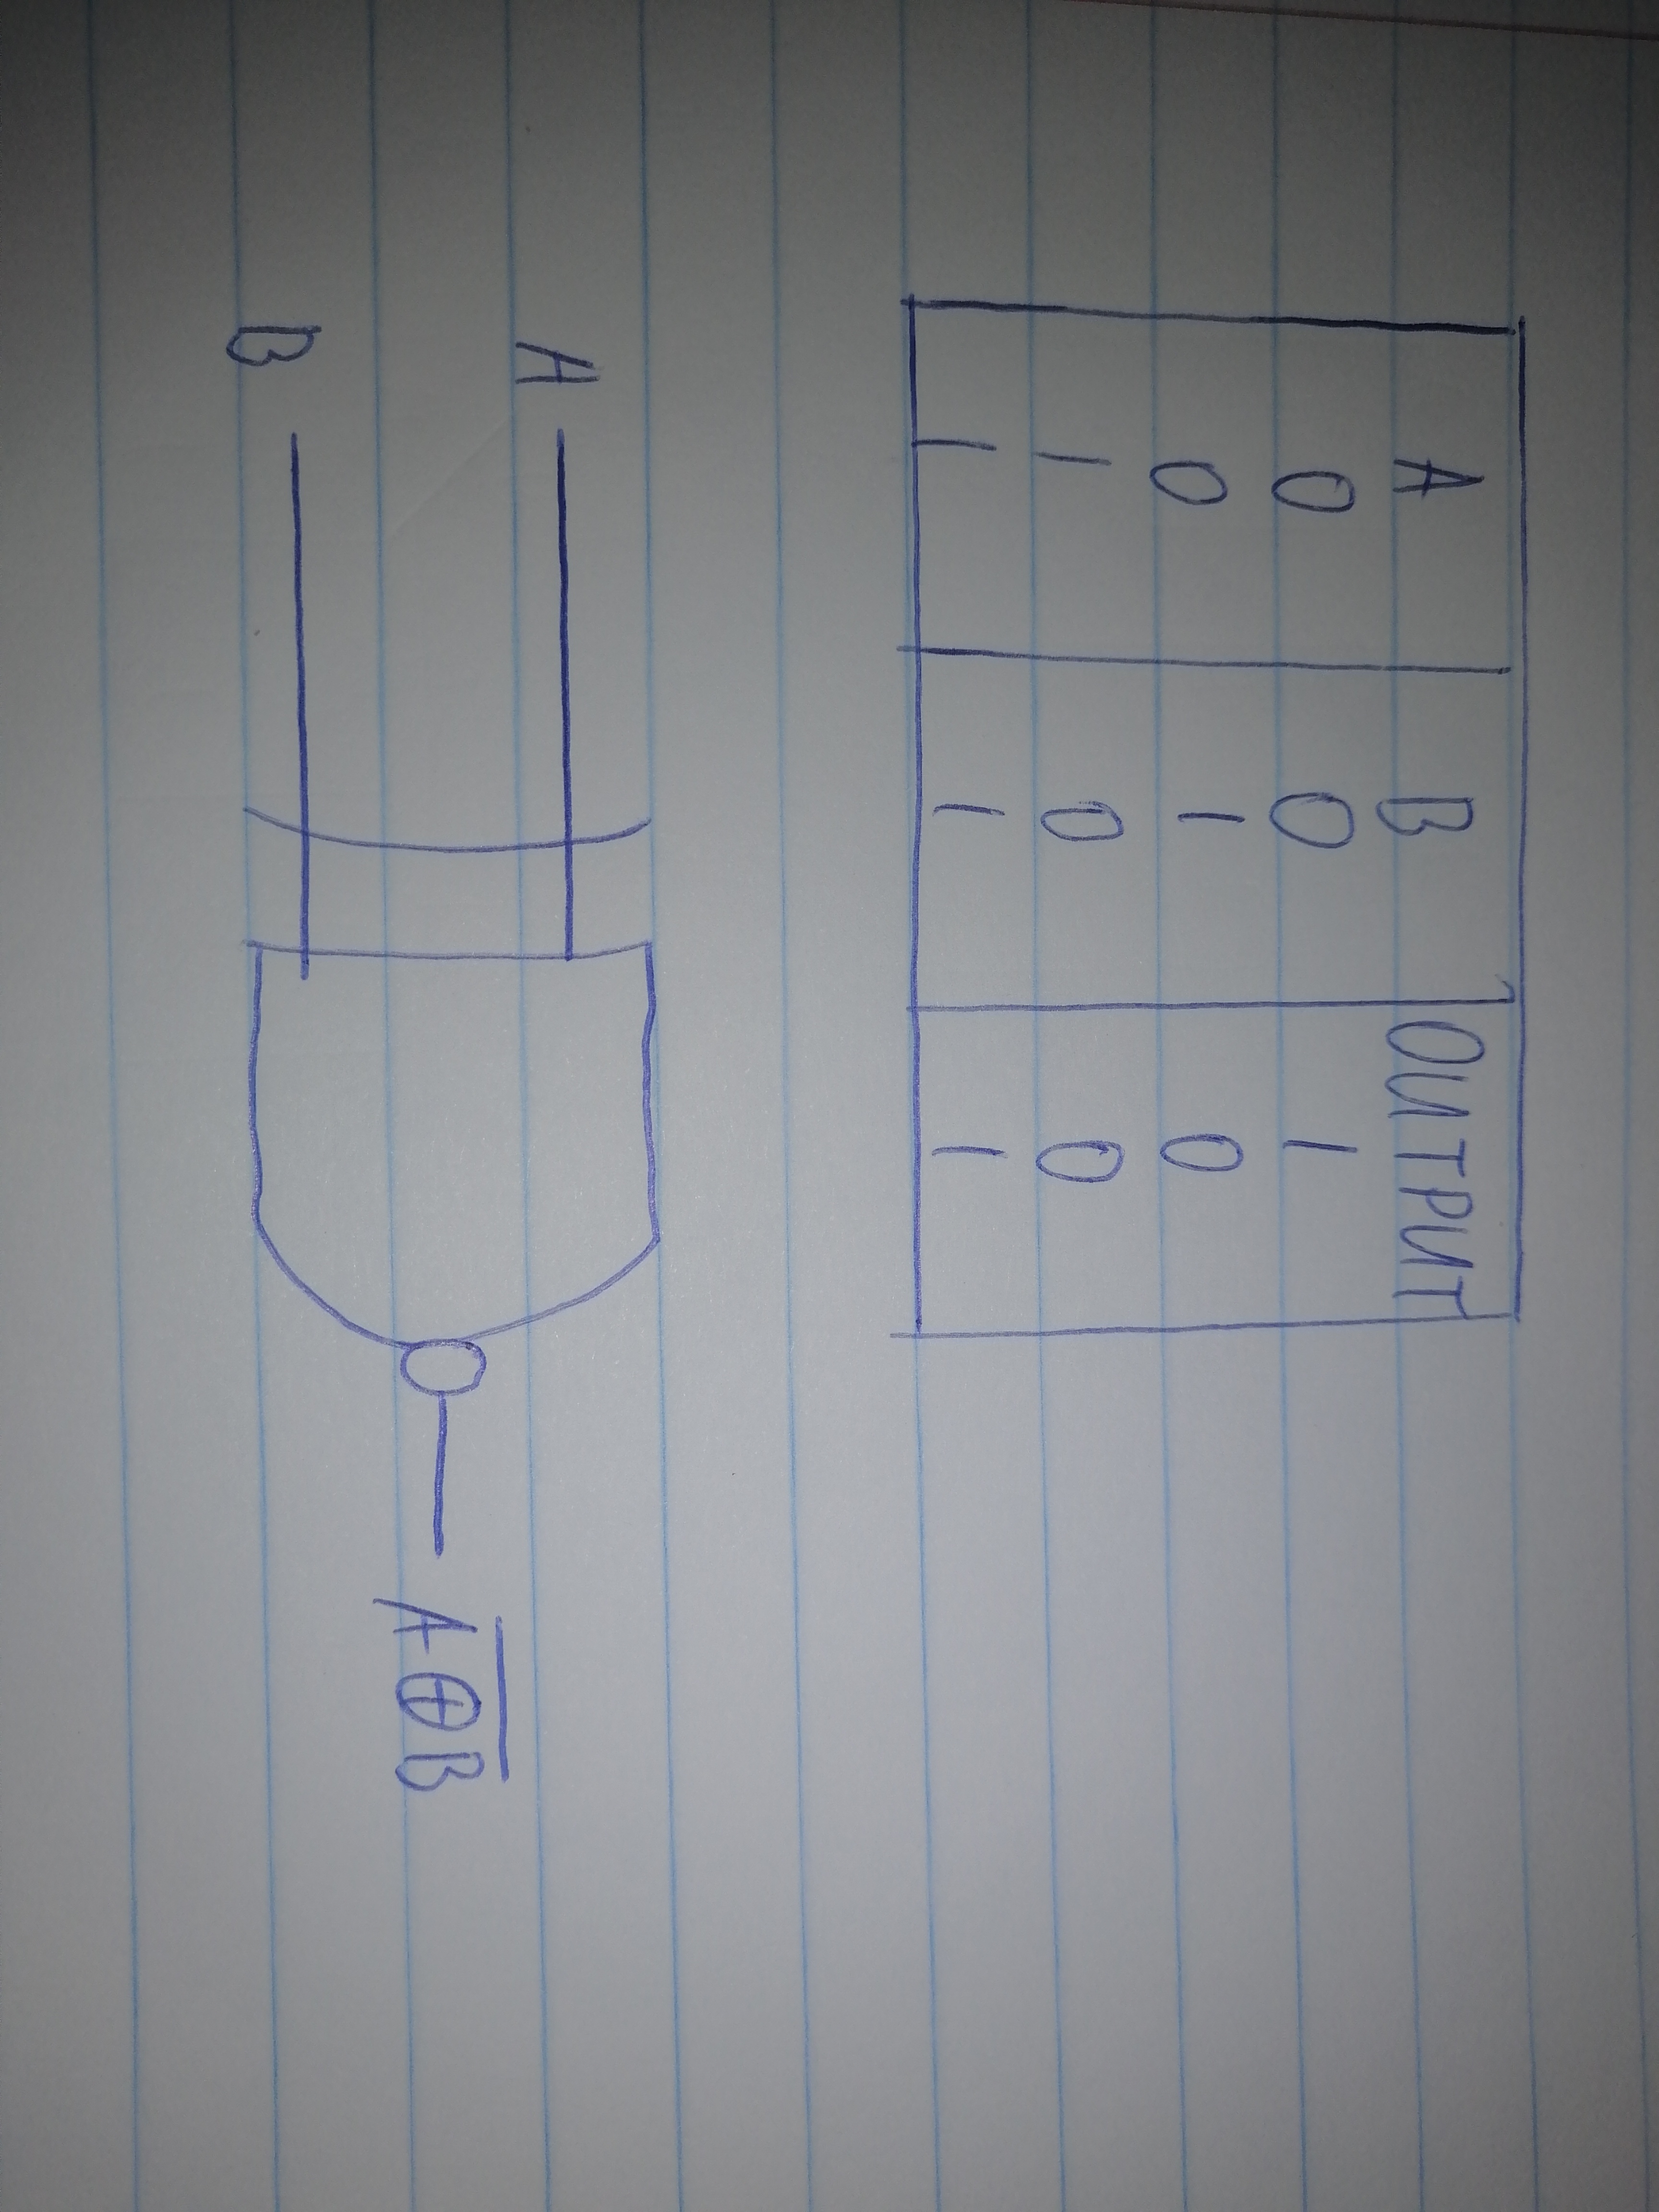 A B OUTPUT
0 0 1
0 1 0
1 0 0
1 1 1
A
B
A̅ ̅⊕̅ ̅B̅